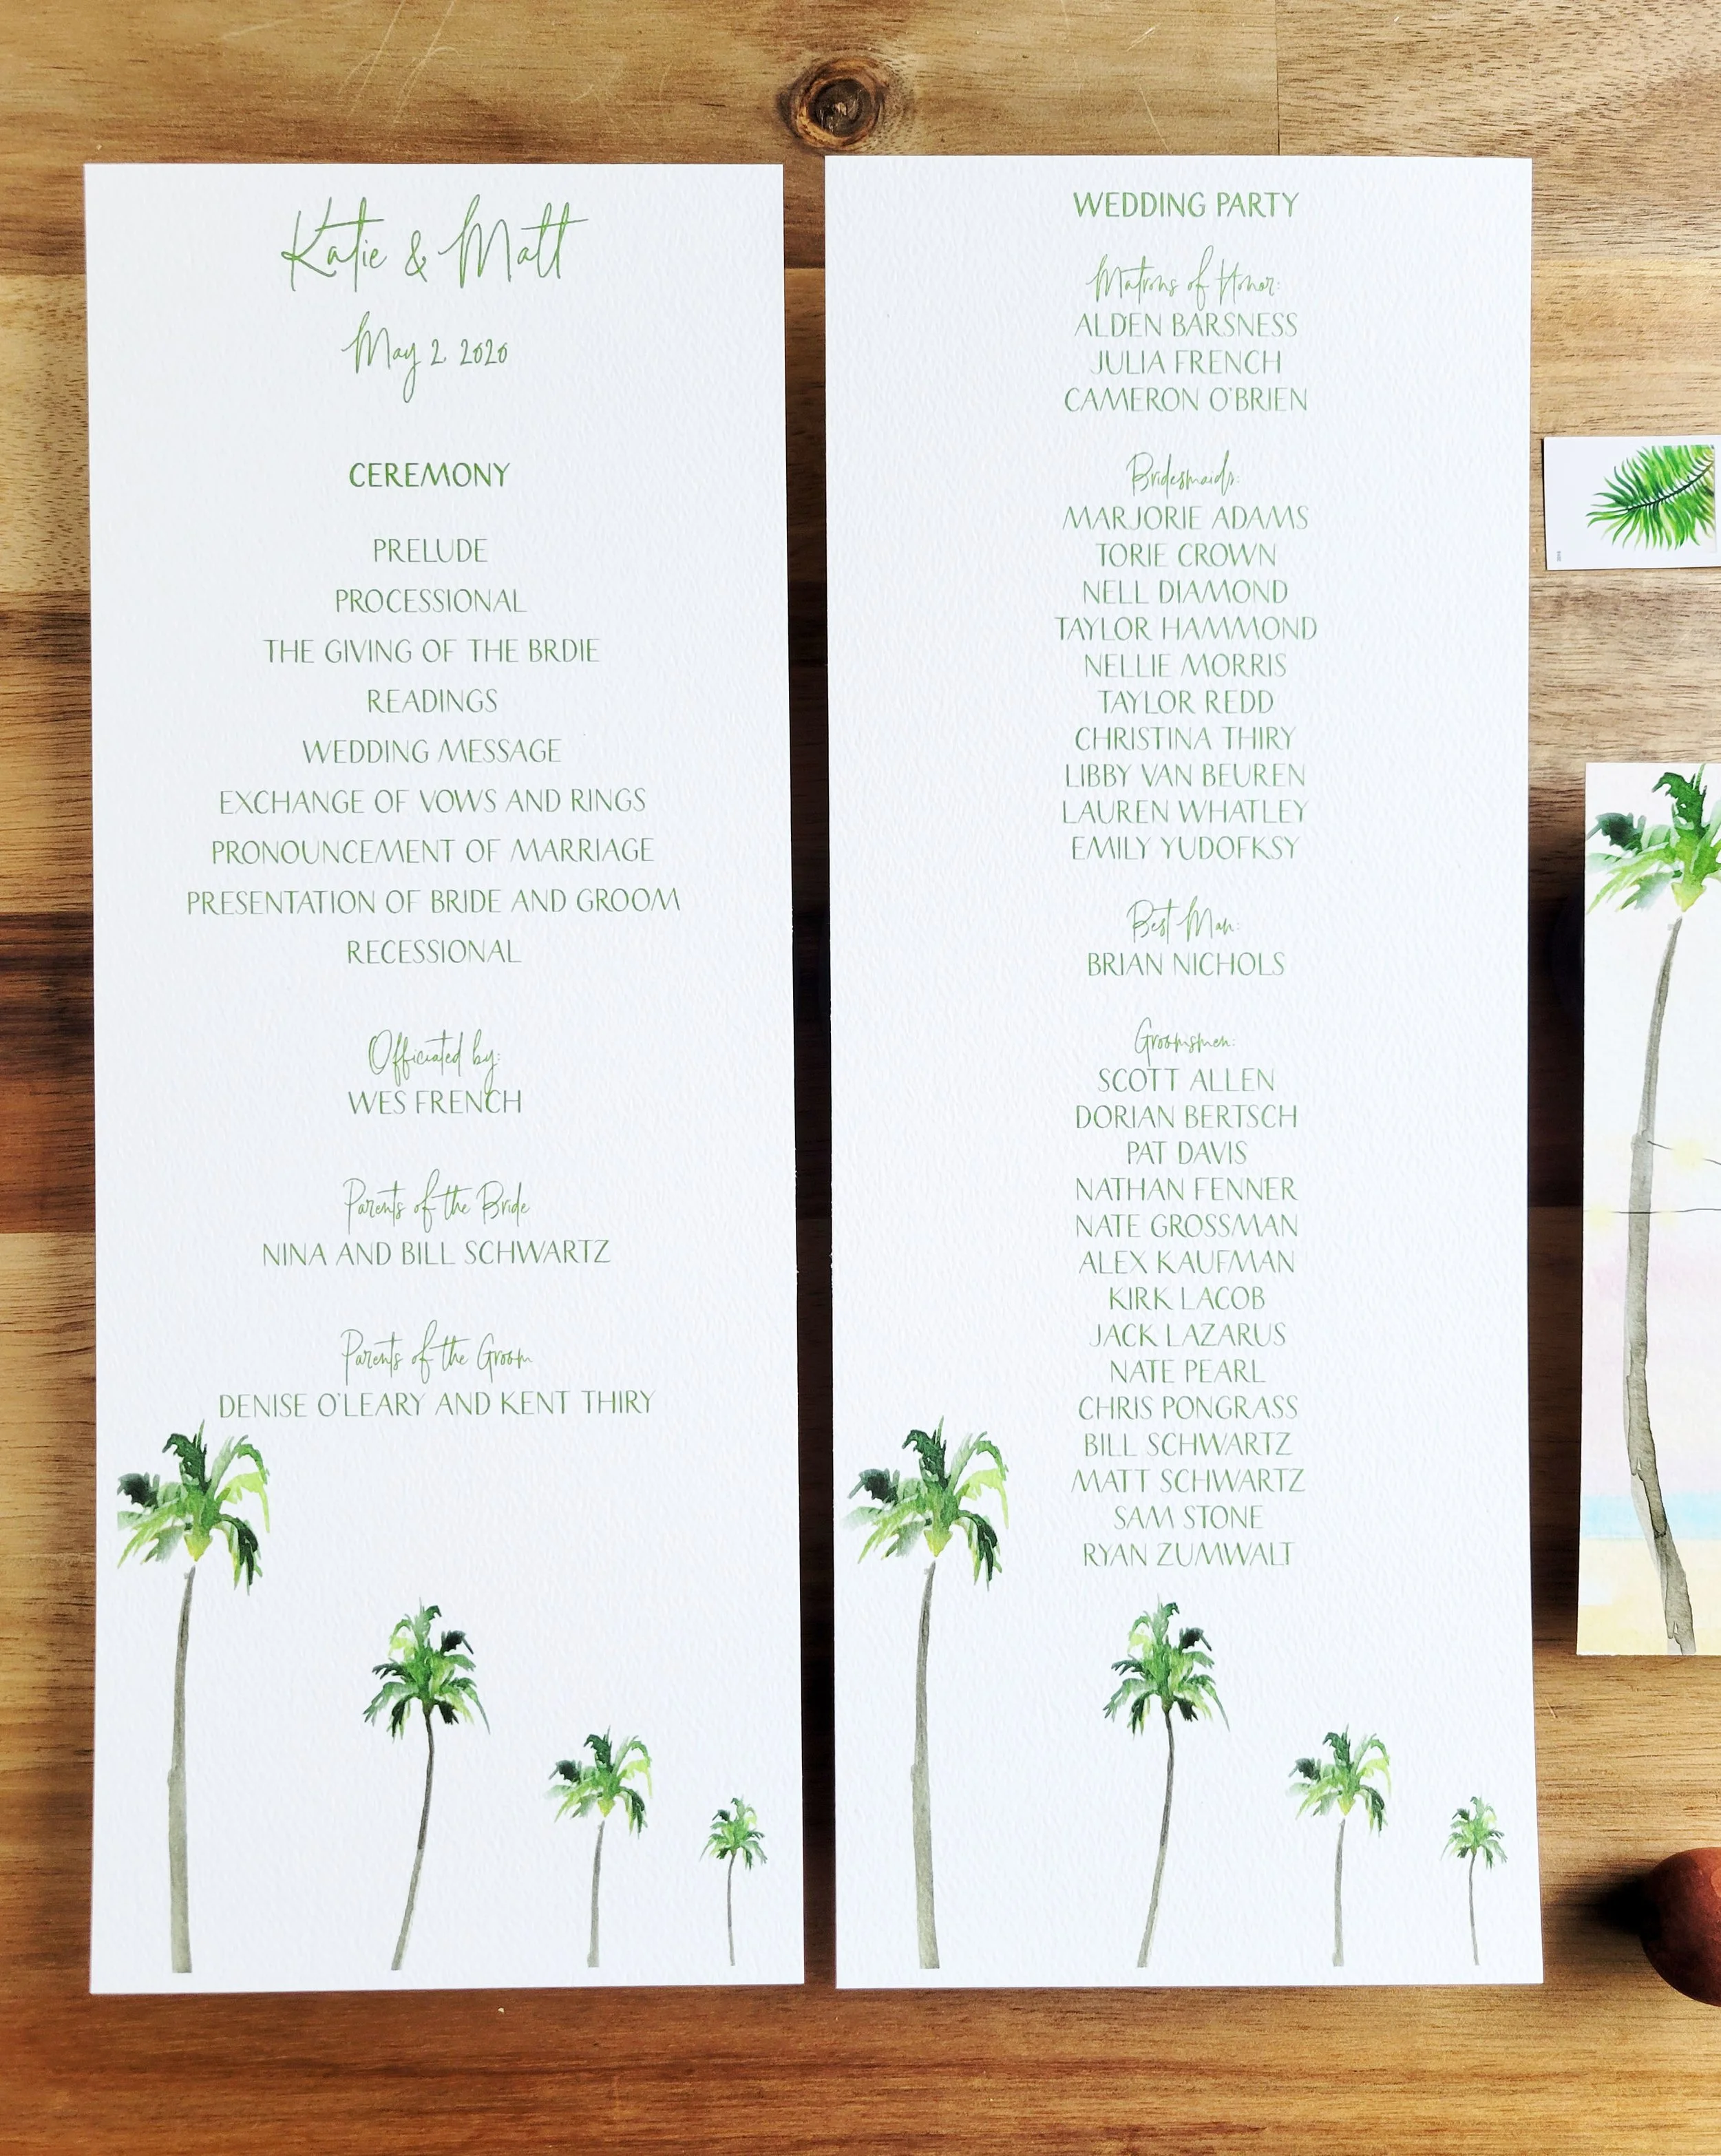 Katie & Matt
May 2, 2020
CEREMONY
PRELUDE
PROCESSIONAL
THE GIVING OF THE BRDIE
READINGS
WEDDING MESSAGE
EXCHANGE OF VOWS AND RINGS
PRONOUNCEMENT OF MARRIAGE
PRESENTATION OF BRIDE AND GROOM
RECESSIONAL
Officiated by:
WES FRENCH
Parents of the Bride
NINA AND BILL SCHWARTZ
Parents of the Groom
DENISE O'LEARY AND KENT THIRY
WEDDING PARTY
Matrons of Honor:
ALDEN BARSNESS
JULIA FRENCH
CAMERON O'BRIEN
Bridesmaids:
MARJORIE ADAMS
TORIE CROWN
NELL DIAMOND
TAYLOR HAMMOND
NELLIE MORRIS
TAYLOR REDD
CHRISTINA THIRY
LIBBY VAN BEUREN
LAUREN WHATLEY
EMILY YUDOFKSY
Best Man:
BRIAN NICHOLS
Groomsmen:
SCOTT ALLEN
DORIAN BERTSCH
PAT DAVIS
NATHAN FENNER
NATE GROSSMAN
ALEX KAUFMAN
KIRK LACOB
JACK LAZARUS
NATE PEARL
CHRIS PONGRASS
BILL SCHWARTZ
MATT SCHWARTZ
SAM STONE
RYAN ZUMWALT